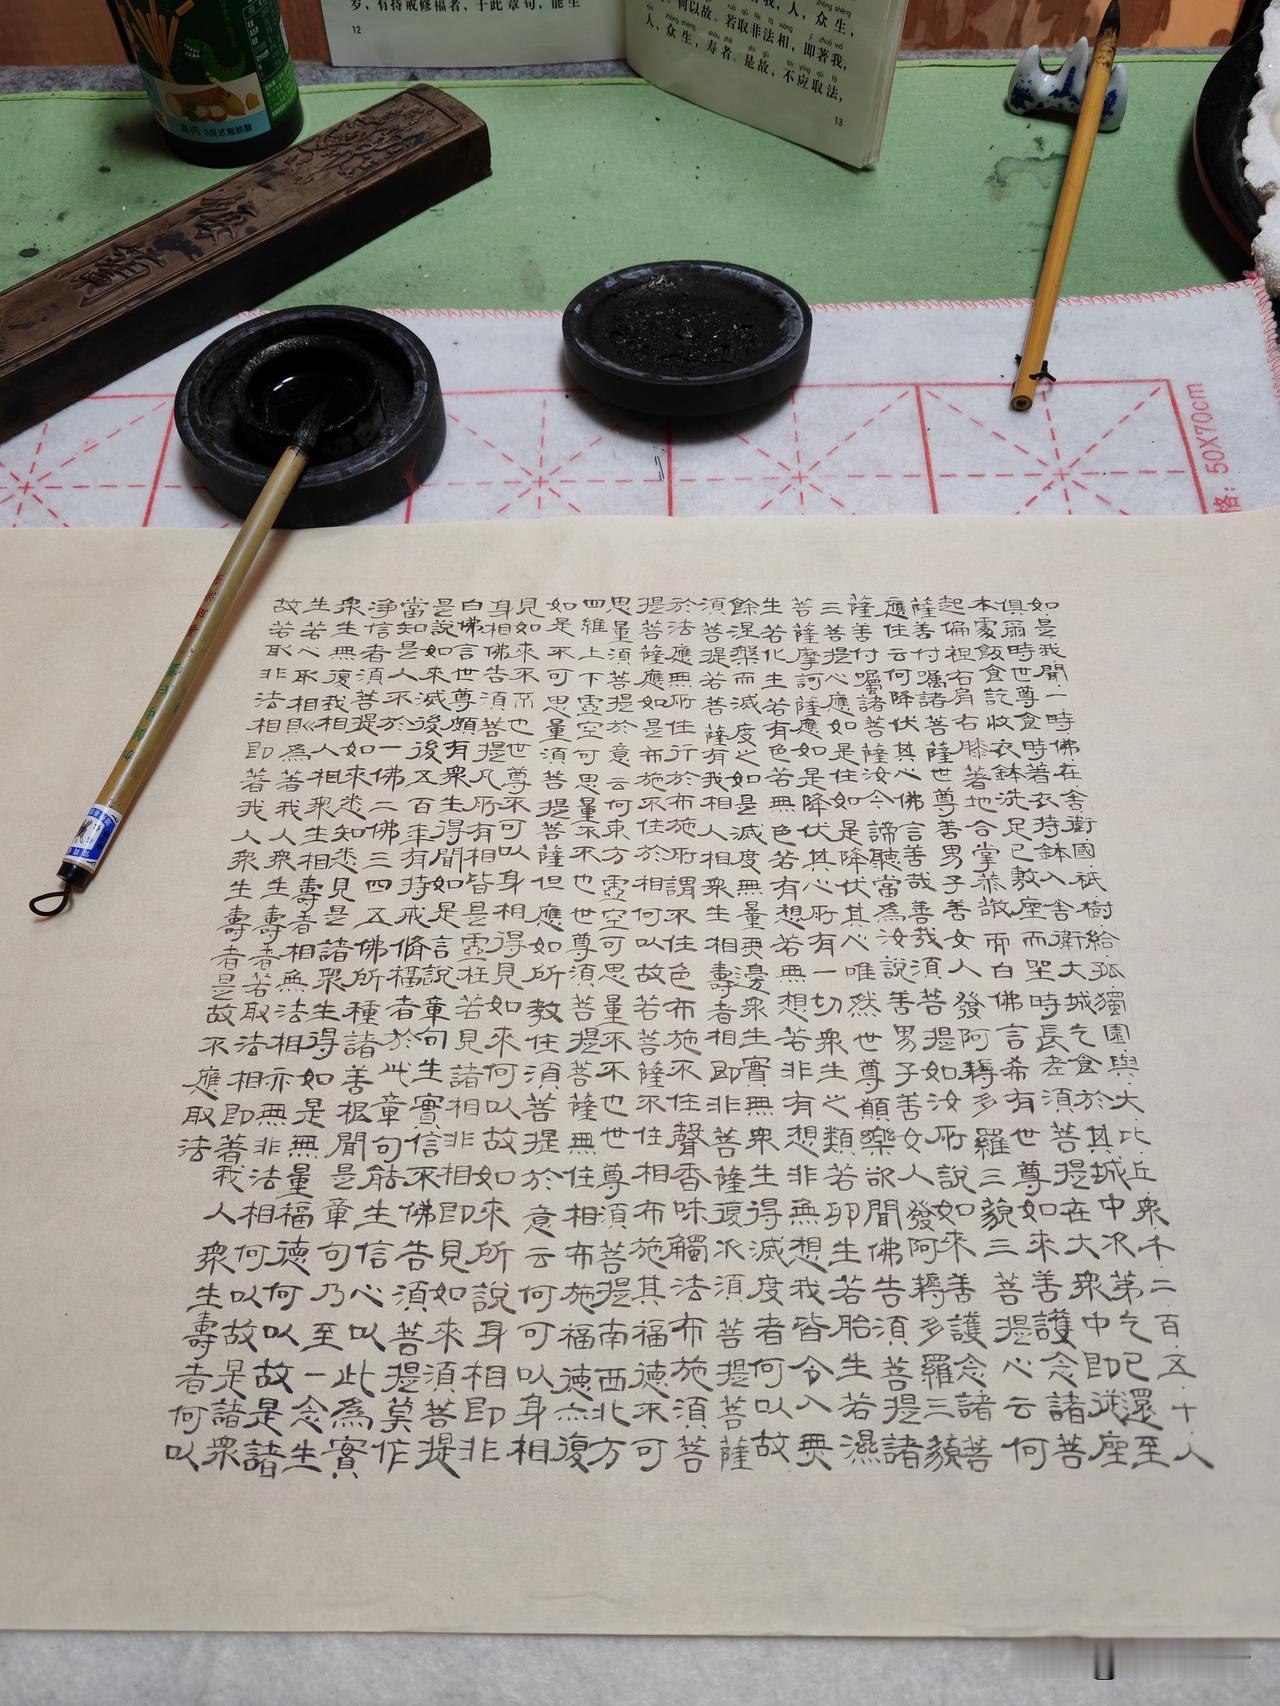 如是我聞一時佛在舍衛國祇樹給孤獨園與大比丘眾千二百五十人
俱爾時世尊食時著衣持鉢入舍衛大城乞食於其城中次第乞已還至
本處飯食訖收衣鉢洗足已敷座而坐時長老須菩提在大眾中即從座
起偏袒右肩右膝著地合掌恭敬而白佛言希有世尊如來善護念諸菩
薩善付囑諸菩薩世尊善男子善女人發阿耨多羅三藐三菩提心云何
應住云何降伏其心佛言善哉善哉須菩提如汝所說如來善護念諸菩
薩善付囑諸菩薩汝今諦聽當為汝說善男子善女人發阿耨多羅三藐
三菩提心應如是住如是降伏其心唯然世尊願樂欲聞佛告須菩提諸
菩薩摩訶薩應如是降伏其心所有一切眾生之類若卵生若胎生若濕
生若化生若有色若無色若有想若無想若非有想非無想我皆令入無
餘涅槃而滅度之如是滅度無量無邊眾生實無眾生得滅度者何以故
須菩提若菩薩有我相人相眾生相壽者相即非菩薩復次須菩提菩薩
於法應無所住行於布施所謂不住色布施不住聲香味觸法布施須菩
提菩薩應如是布施不住於相何以故若菩薩不住相布施其福德不可
思量須菩提於意云何東方虛空可思量不不也世尊須菩提南西北方
四維上下虛空可思量不不也世尊須菩提菩薩無住相布施福德亦復
如是不可思量須菩提菩薩但應如所教住須菩提於意云何可以身相
見如來不不也世尊不可以身相得見如來何以故如來所說身相即非
身相佛告須菩提凡所有相皆是虛妄若見諸相非相即見如來須菩提
白佛言世尊頗有眾生得聞如是言說章句生實信不佛告須菩提莫作
是說如來滅後後五百年有持戒脩福者於此章句能生信心以此為實
當知是人不於一佛二佛三四五佛所種諸善根聞是章句乃至一念生
淨信者須菩提如來悉知悉見是諸眾生得如是無量福德何以故是諸
眾生無復我相人相眾生相壽者相無法相亦無非法相何以故是諸眾
生若心取相則為著我人眾生壽者若取法相即著我人眾生壽者何以
故若取非法相即著我人眾生壽者是故不應取法
岁，有持戒修福者，于此章句，能生
12
何以故。若取非法相，即著我，
人，众生，寿者。是故，不应取法，
13
高钙 0反式脂肪酸
格：50X70cm